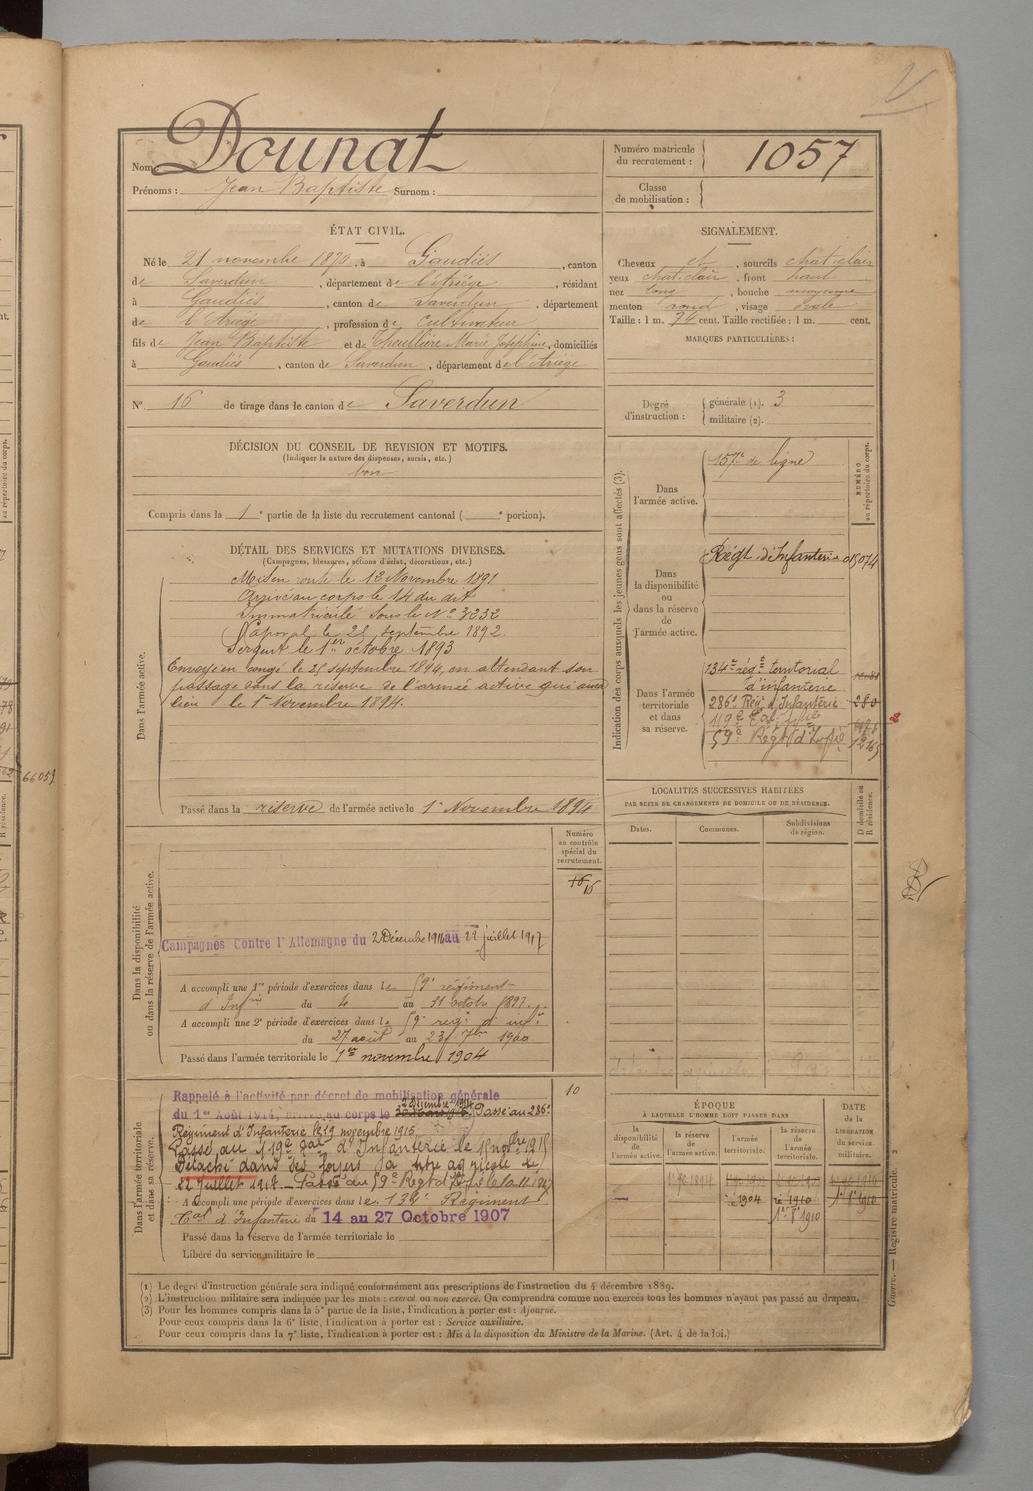 Nom Dounat
Prénoms : Jean Baptiste Surnom :
Numéro matricule du recrutement : 1057
Classe de mobilisation :
ÉTAT CIVIL.
Né le 21 novembre 1870, à Gaudiés, canton
de Saverdun, département de l'Ariège, résidant
à Gaudiés, canton de Saverdun, département
de l'Ariège, profession de cultivateur
fils de Jean Baptiste et de Marie Joséphine, domiciliés
à Gaudiés, canton de Saverdun, département de l'Ariège
N° 16 de tirage dans le canton de Saverdun
SIGNALEMENT.
Cheveux et, sourcils chat. clair
yeux chat. clair, front haut
nez long, bouche moyenne
menton rond, visage ovale
Taille : 1 m. 74 cent. Taille rectifiée : 1 m. cent.
MARQUES PARTICULIÈRES :
Degré d'instruction : générale (1). 3
militaire (2).
DÉCISION DU CONSEIL DE REVISION ET MOTIFS.
(Indiquer la nature des dispenses, sursis, etc.)
bon
Compris dans la 1e partie de la liste du recrutement cantonal ( e portion).
DÉTAIL DES SERVICES ET MUTATIONS DIVERSES.
(Campagnes, blessures, actions d'éclat, décorations, etc.)
Dans l'armée active.
Mis en route le 13 Novembre 1891
Arrivé au corps le 14 du dit
Immatriculé sous le N° 3232
Caporal le 25 septembre 1892.
Sergent le 1er octobre 1893
Envoyé en congé le 25 septembre 1894, en attendant son
passage dans la réserve de l'armée active qui aura
lieu le 1er Novembre 1894.
Passé dans la réserve de l'armée active le 1er Novembre 1894
Indication des corps auxquels les jeunes gens sont affectés (3).
NUMÉRO au répertoire du corps.
Dans l'armée active.
157e de ligne
Dans la disponibilité ou dans la réserve de l'armée active.
Régt. d'Infanterie 015074
Dans l'armée territoriale et dans sa réserve.
134e rég. territorial
d'infanterie
286e Rég. d'Infanterie 280
119e
59e Régt d'Infie
LOCALITÉS SUCCESSIVES HABITÉES
PAR SUITE DE CHANGEMENTS DE DOMICILE OU DE RÉSIDENCE.
D domicile ou R résidence.
Dates. Communes. Subdivisions de région.
Numéro au contrôle spécial du recrutement.
Dans la disponibilité ou dans la réserve de l'armée active.
Campagnes Contre l'Allemagne du 2 Décembre 1914 au 22 juillet 1917
A accompli une 1re période d'exercices dans le 59e régiment
d'Infrie du 4 au 31 octobre 1897.
A accompli une 2e période d'exercices dans le 59e rég. d'inf.
du 27 août au 23 7bre 1900
Passé dans l'armée territoriale le 1er novembre 1904
Dans l'armée territoriale et dans sa réserve.
10
Rappelé à l'activité par décret de mobilisation générale
2 Décembre 1914
du 1er Août 1914, arrivé au corps le Passé au 286e
Régiment d'Infanterie le 19 novembre 1915
Passé au 119e d'Infanterie le
Détaché dans ses foyers agricole le
22 Juillet 1917 Passé au 59e Régt d'Infie le
A accompli une période d'exercices dans le 134e Régiment
Tal d'Infanterie du 14 au 27 Octobre 1907
Passé dans la réserve de l'armée territoriale le
Libéré du service militaire le
ÉPOQUE
À LAQUELLE L'HOMME DOIT PASSER DANS
DATE DE LA LIBÉRATION du service militaire.
la disponibilité de l'armée active. la réserve de l'armée active. l'armée territoriale. la réserve de l'armée territoriale.
(1) Le degré d'instruction générale sera indiqué conformément aux prescriptions de l'instruction du 4 décembre 1889.
(2) L'instruction militaire sera indiquée par les mots : exercé ou non exercé. On comprendra comme non exercés tous les hommes n'ayant pas passé au drapeau.
(3) Pour les hommes compris dans la 5e partie de la liste, l'indication à porter est : Ajourné.
Pour ceux compris dans la 6e liste, l'indication à porter est : Service auxiliaire.
Pour ceux compris dans la 7e liste, l'indication à porter est : Mis à la disposition du Ministre de la Marine. (Art. 4 de la loi.)
Guerre. — Registre matricule. 2